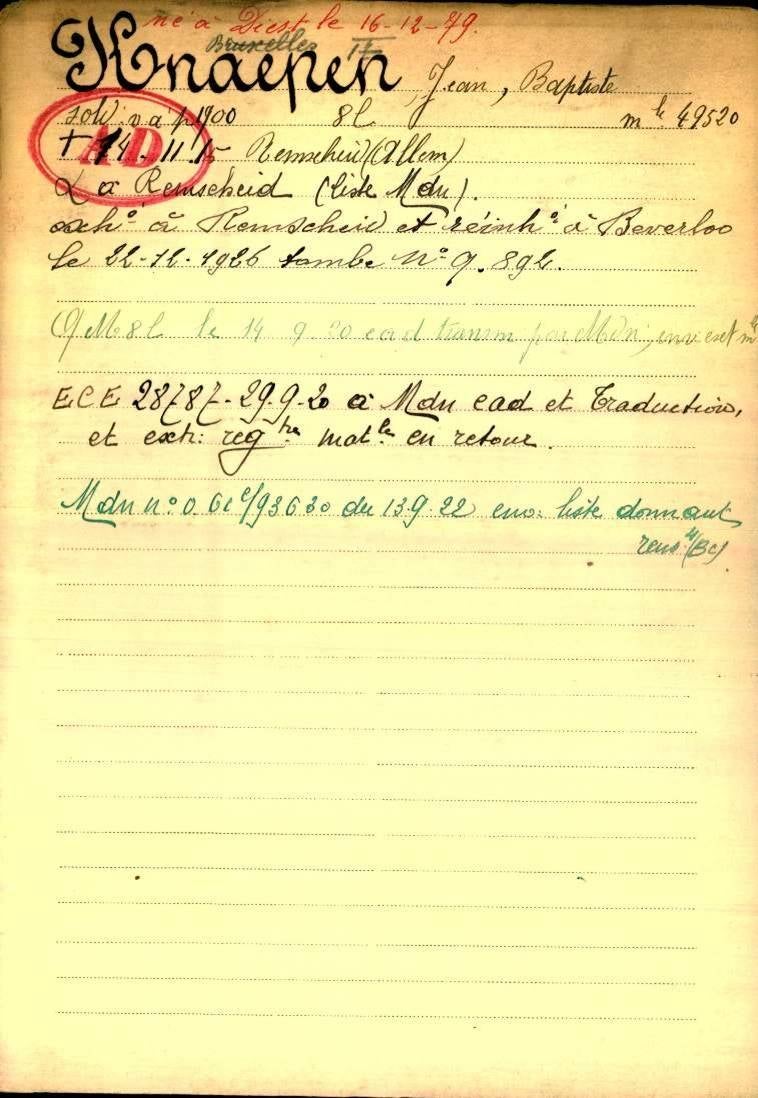 né à Diest le 16-12-79.
Bruxelles IV
Knaepen, Jean, Baptiste
sold: v a p 1900 8l mle 49520
AD
+ 14.11.15 Remscheid (Allem)
à Remscheid (liste Mdn).
exho à Remscheid et réinho à Beverloo
le 22-12-1926 tombe No 9.892.
QM8l le 14 9 20 cad transm par Mdn; env ext mle
ECE 28787-29.9.20 à Mdn cad et Traduction,
et extr: regtre matle en retour.
Mdn no 0.61c/93630 du 13.9.22 env: liste donnant
(Bc)